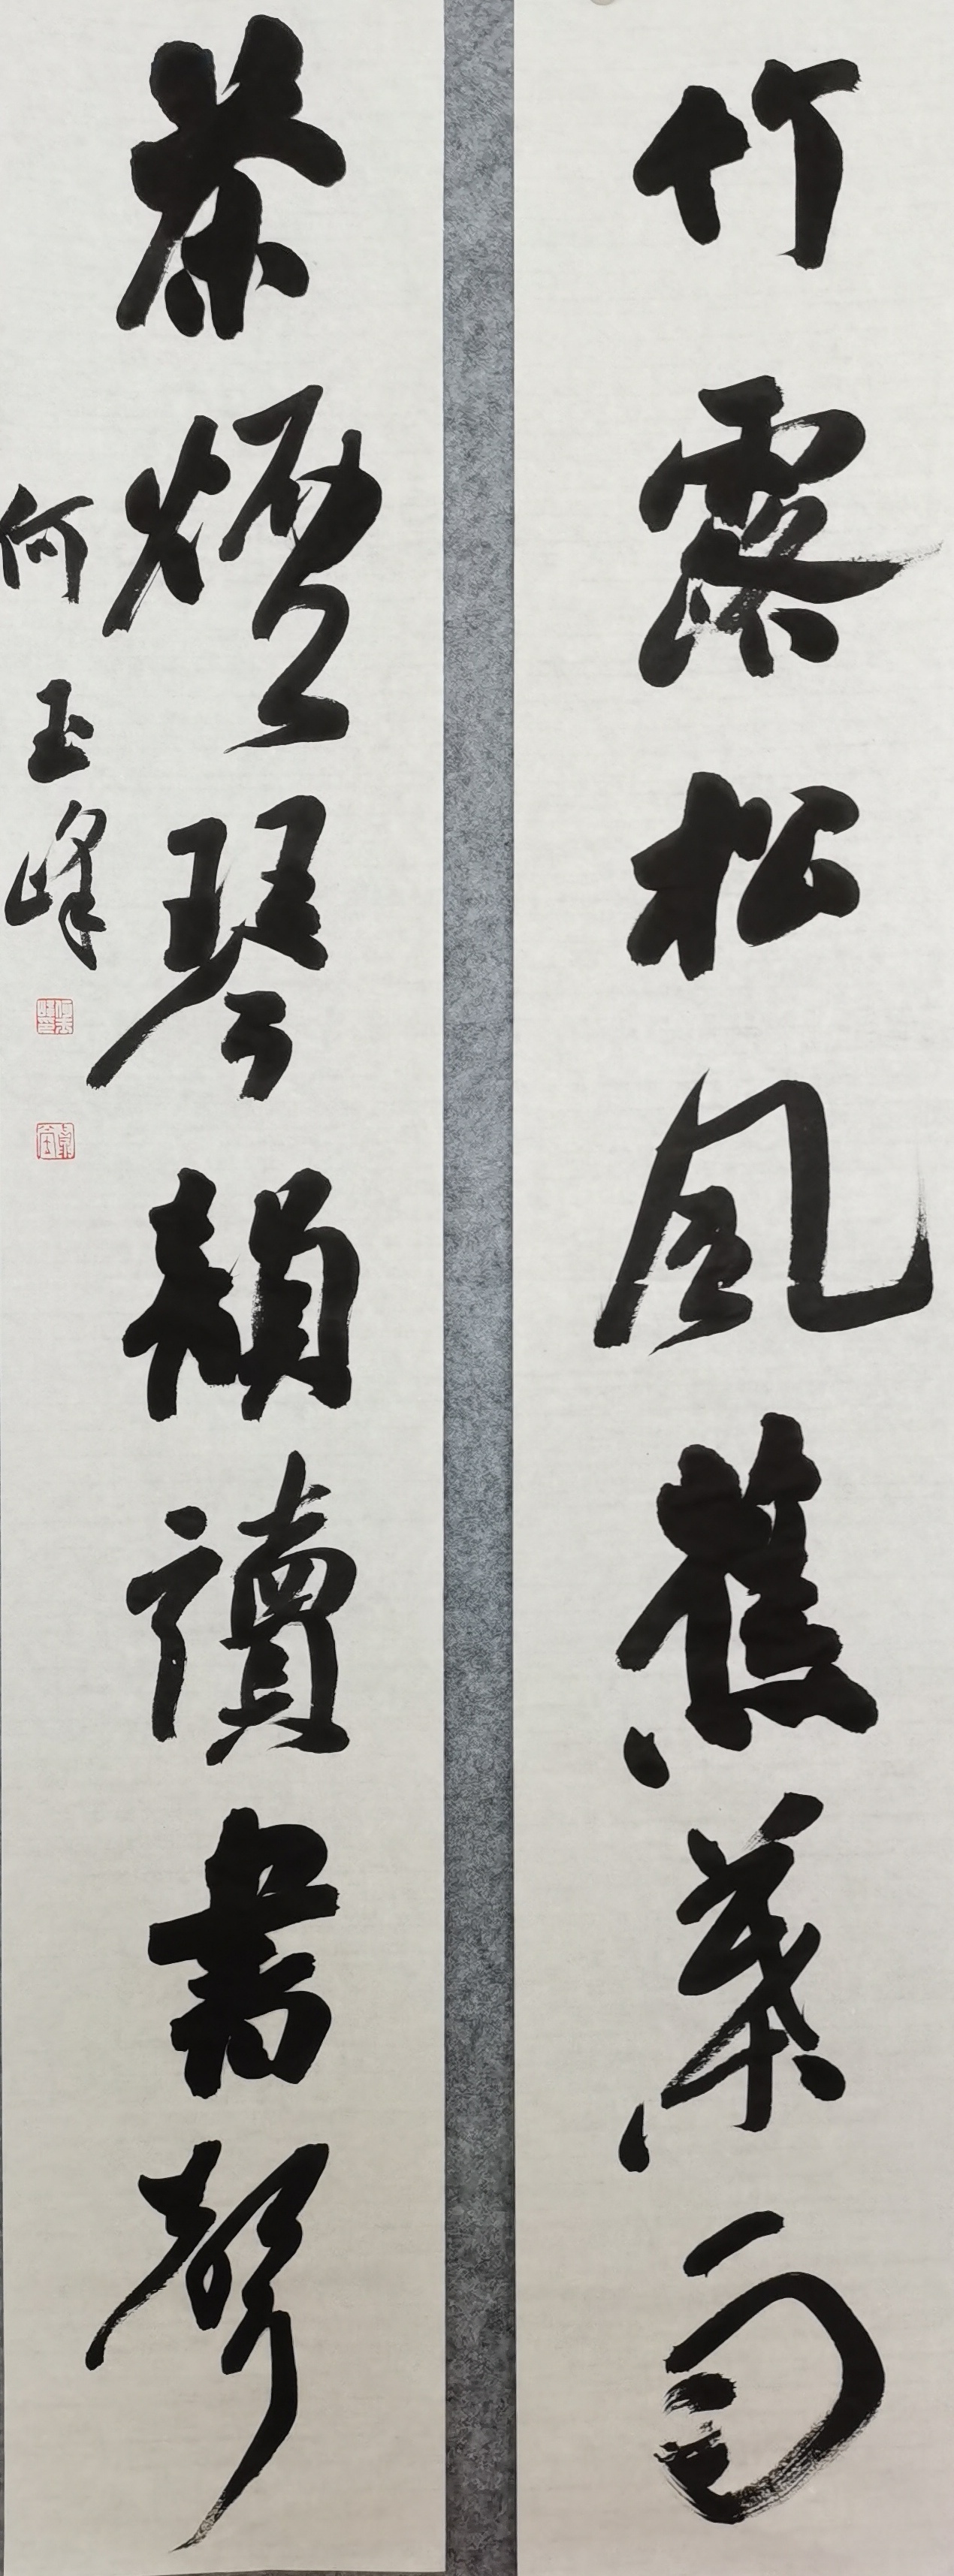 竹露松風蕉葉雨
茶煙琴韻讀書聲
何玉峰